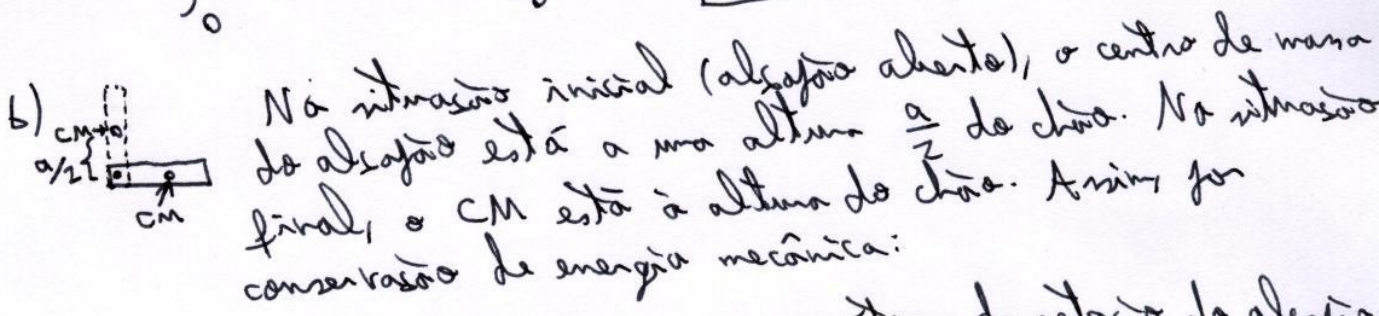 b) Na situação inicial (alçapão aberto), o centro de massa
CM
a/2
CM
do alçapão está a uma altura a/2 do chão. Na situação
final, o CM está à altura do chão. Assim, por
conservação de energia mecânica: